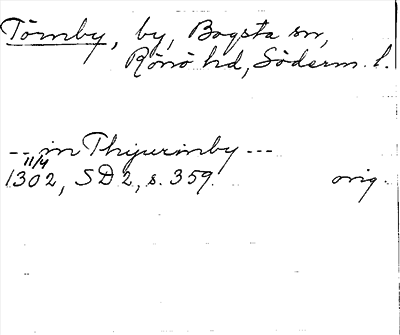 Törnby, by, Bogsta sn,
Rönö hd, Söderm. l.
-- in Thyurinby ---
11/4
1302, SD 2, s. 359. orig.